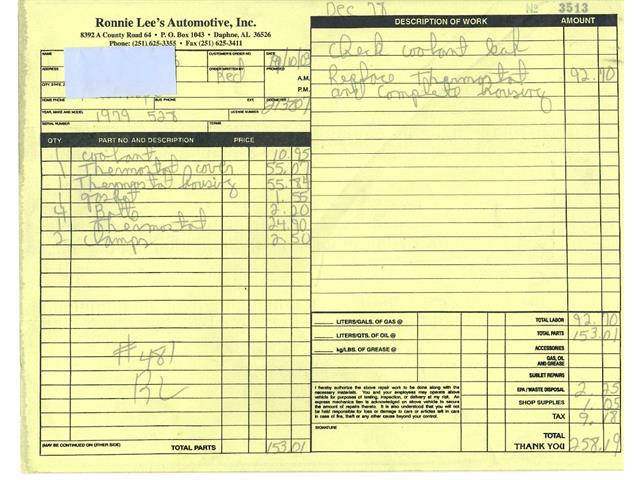 Ronnie Lee's Automotive, Inc.
8392 A County Road 64 • P. O. Box 1043 • Daphne, AL 36526
Phone: (251) 625-3355 • Fax (251) 625-3411
NAME
CUSTOMER'S ORDER NO.
DATE
ADDRESS
ORDER WRITTEN BY
PROMISED
A.M.
CITY, STATE, Z
P.M.
HOME PHONE
BUS. PHONE
EXT.
YEAR, MAKE AND MODEL
LICENSE NUMBER
1979 528
SERIAL NUMBER
TERMS
QTY. PART NO. AND DESCRIPTION PRICE
1 coolant 10.95
1 Thermostat cover 55.07
1 Thermostat housing 55.84
1 gasket 1.55
4 Bolts 2.20
1 Thermostat 24.90
2 clamps 2.50
#481
RL
(MAY BE CONTINUED ON OTHER SIDE) TOTAL PARTS 153.01
Dec 78 № 3513
DESCRIPTION OF WORK AMOUNT
Check coolant leak
Replace Thermostat 92.70
and Complete housing
LITERS/GALS. OF GAS @
LITERS/QTS. OF OIL @
kg/LBS. OF GREASE @
I hereby authorize the above repair work to be done along with the
necessary materials. You and your employees may operate above
vehicle for purposes of testing, inspection, or delivery at my risk. An
express mechanics lien is acknowledged on above vehicle to secure
the amount of repairs thereto. It is also understood that you will not
be held responsible for loss or damage to cars or articles left in cars
in case of fire, theft or any other cause beyond your control.
SIGNATURE
TOTAL LABOR 92.70
TOTAL PARTS 153.01
ACCESSORIES
GAS, OIL
AND GREASE
SUBLET REPAIRS
EPA / WASTE DISPOSAL 2.25
SHOP SUPPLIES 1.05
TAX 9.18
TOTAL
THANK YOU 258.19